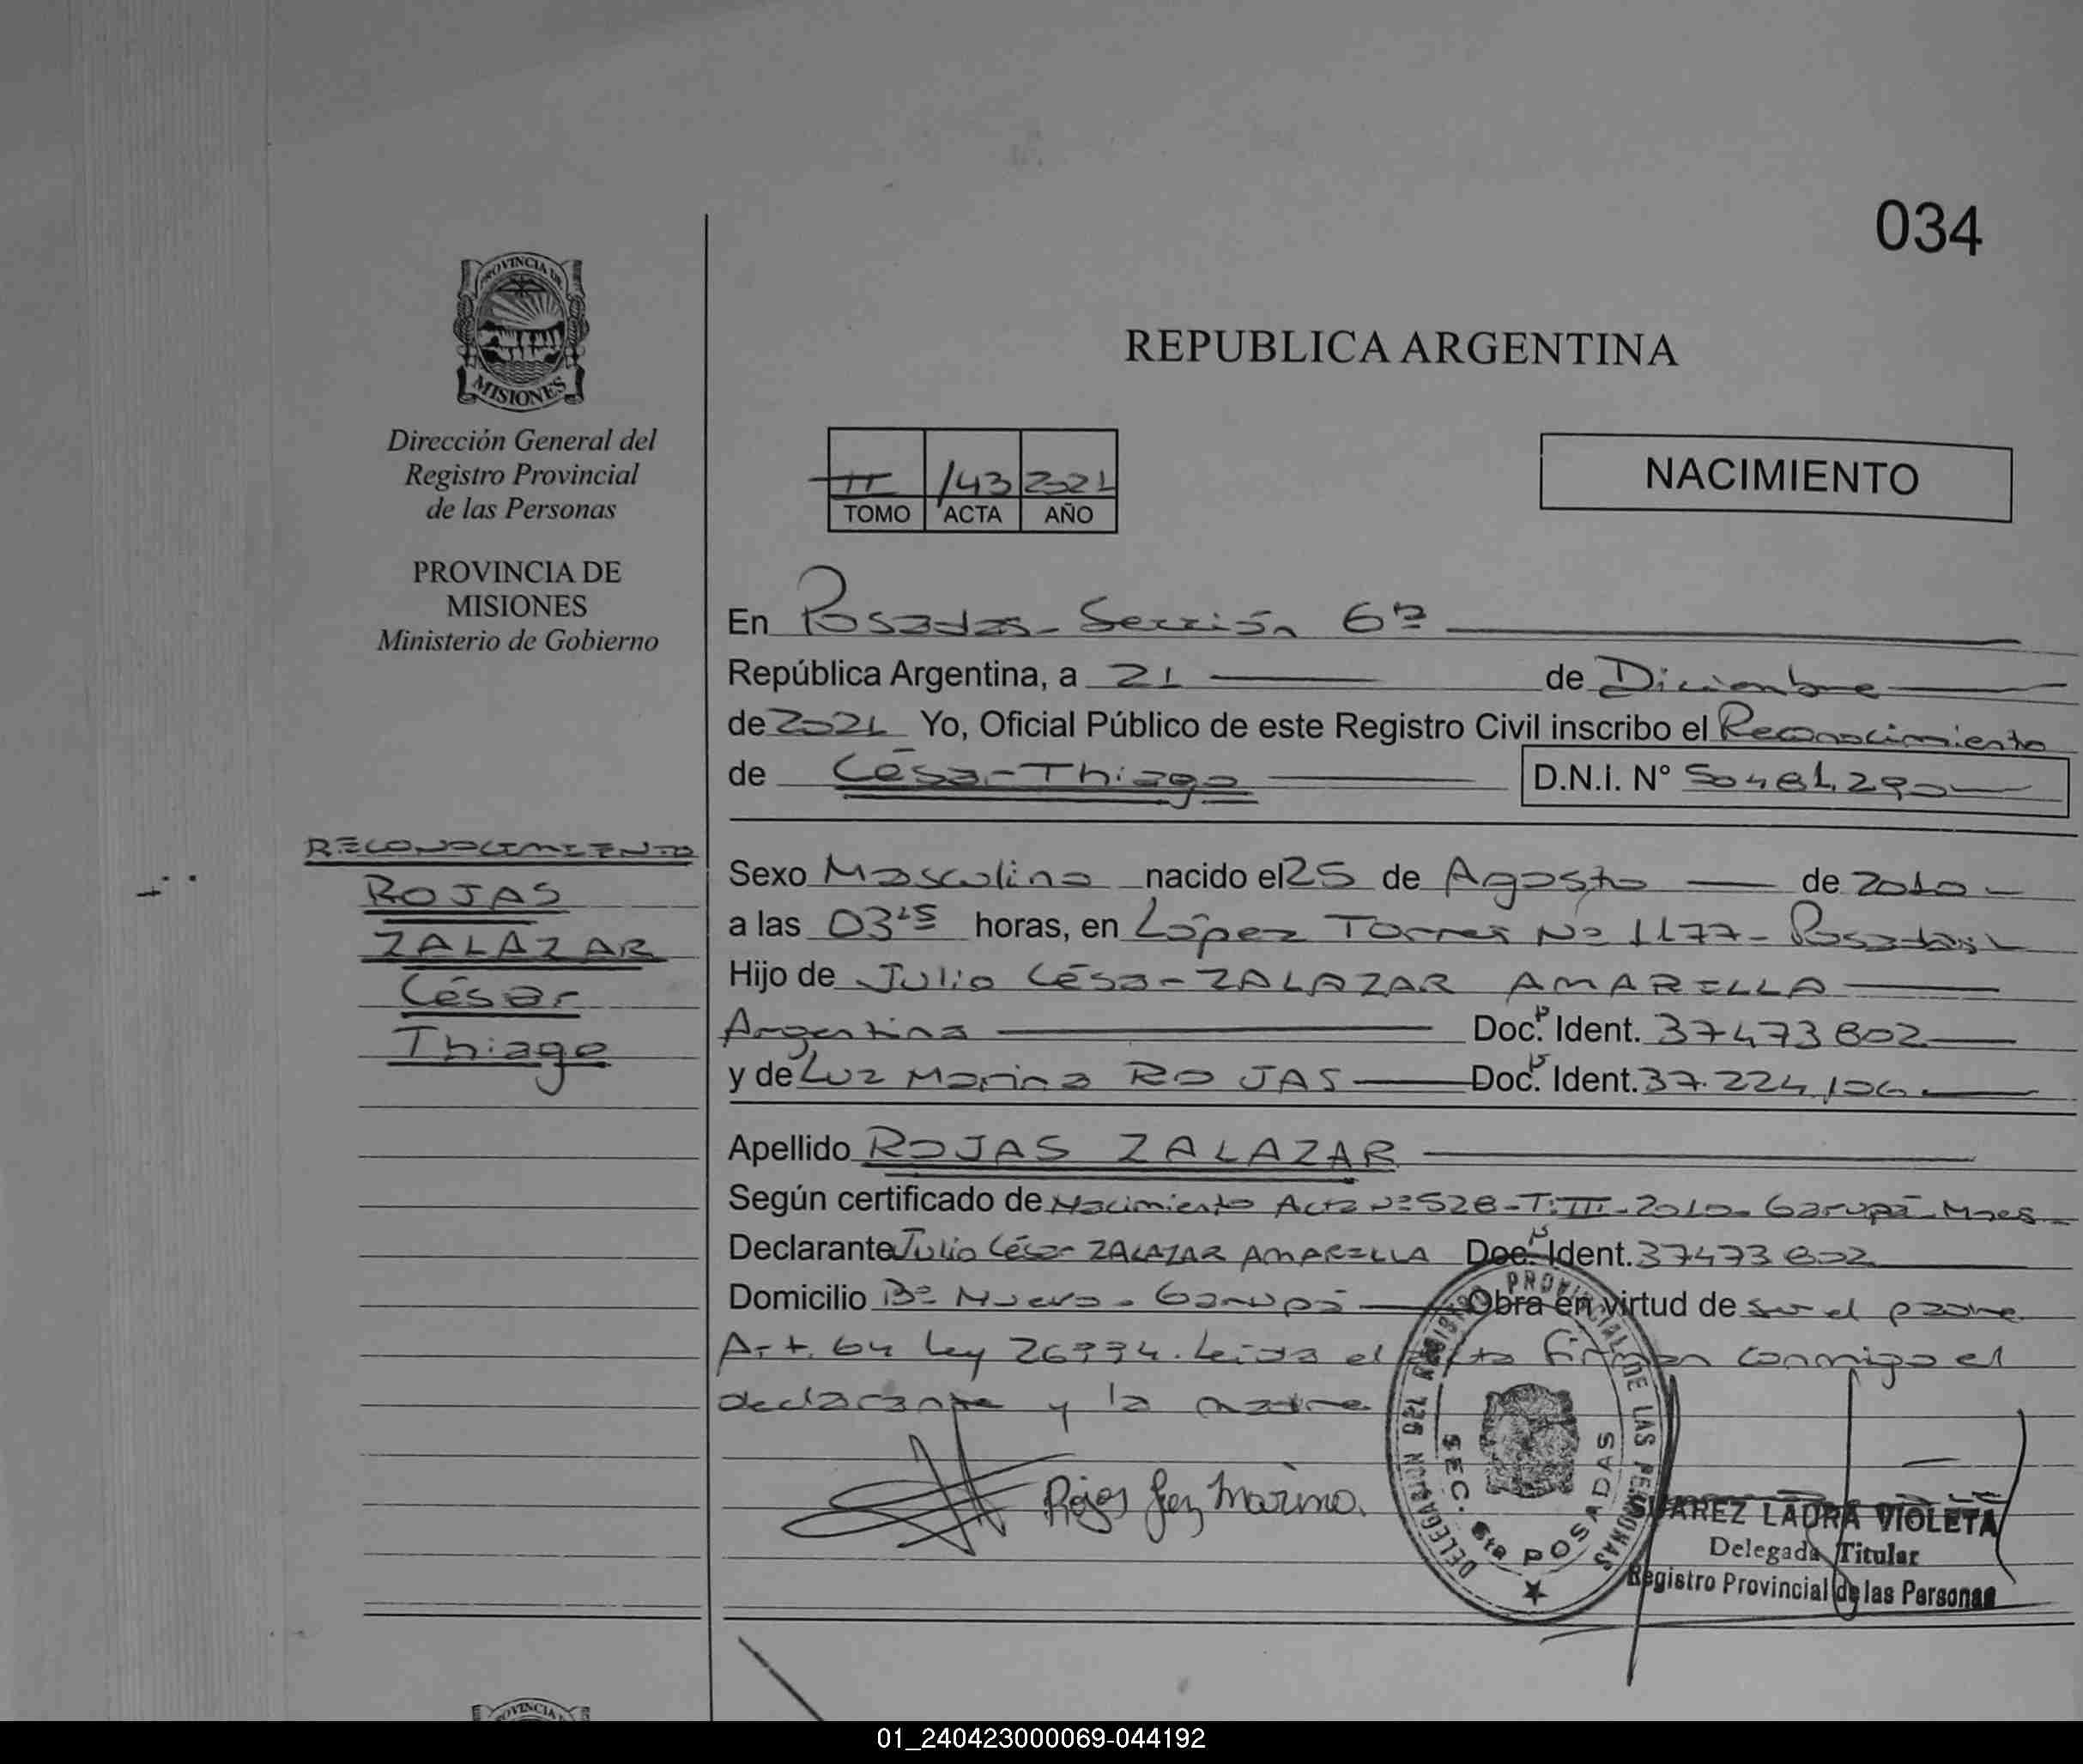 034
PROVINCIA DE
MISIONES
Dirección General del
Registro Provincial
de las Personas
PROVINCIA DE
MISIONES
Ministerio de Gobierno
REPUBLICA ARGENTINA
II /43 2021
TOMO ACTA AÑO
NACIMIENTO
En Posadas - Sección 6ª
República Argentina, a 21 de Diciembre
de 2021 Yo, Oficial Público de este Registro Civil inscribo el Reconocimiento
de César Thiago D.N.I. Nº 50481290
RECONOCIMIENTO
ROJAS
ZALAZAR
César
Thiago
Sexo Masculino nacido el 25 de Agosto de 2010
a las 03 15 horas, en López Torres Nº 1177 - Posadas
Hijo de Julio César ZALAZAR AMARELLA
Argentina Doc. Ident. 37473802
y de Luz Marina ROJAS Doc. Ident. 37.224,106
Apellido ROJAS ZALAZAR
Según certificado de Nacimiento Acta Nº 528 - T: III - 2010 - Garupá - Mnes
Declarante Julio César ZALAZAR AMARELLA Doc. Ident. 37473802
Domicilio Bº Nuevo - Garupá Obra en virtud de ser el padre
Art. 64 Ley 26994. Leída el acta firman conmigo el
declarante y la madre
Rojas Luz Marina.
DELEGACION DEL REGISTRO PROVINCIAL DE LAS PERSONAS
SEC. 6ta POSADAS
SUAREZ LAURA VIOLETA
Delegada Titular
Registro Provincial de las Personas
PROVINCIA
01_240423000069-044192